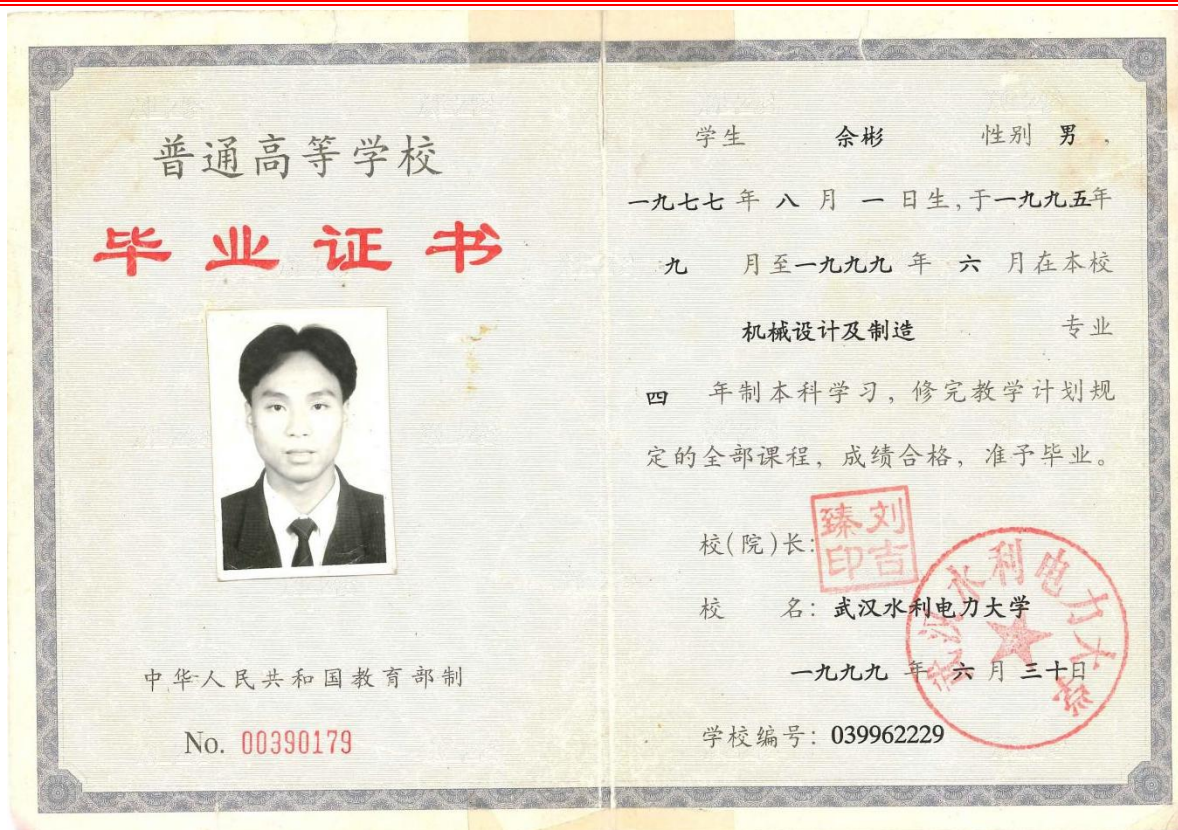 普通高等学校
毕业证书
中华人民共和国教育部制
No. 00390179
学生 余彬 性别 男,
一九七七 年 八 月 一 日生,于一九九五年
九 月至一九九九 年 六 月在本校
机械设计及制造 专业
四 年制本科学习,修完教学计划规
定的全部课程,成绩合格,准予毕业。
校(院)长:
刘吉臻印
校 名: 武汉水利电力大学
武汉水利电力大学
一九九九 年 六 月 三十日
学校编号: 039962229